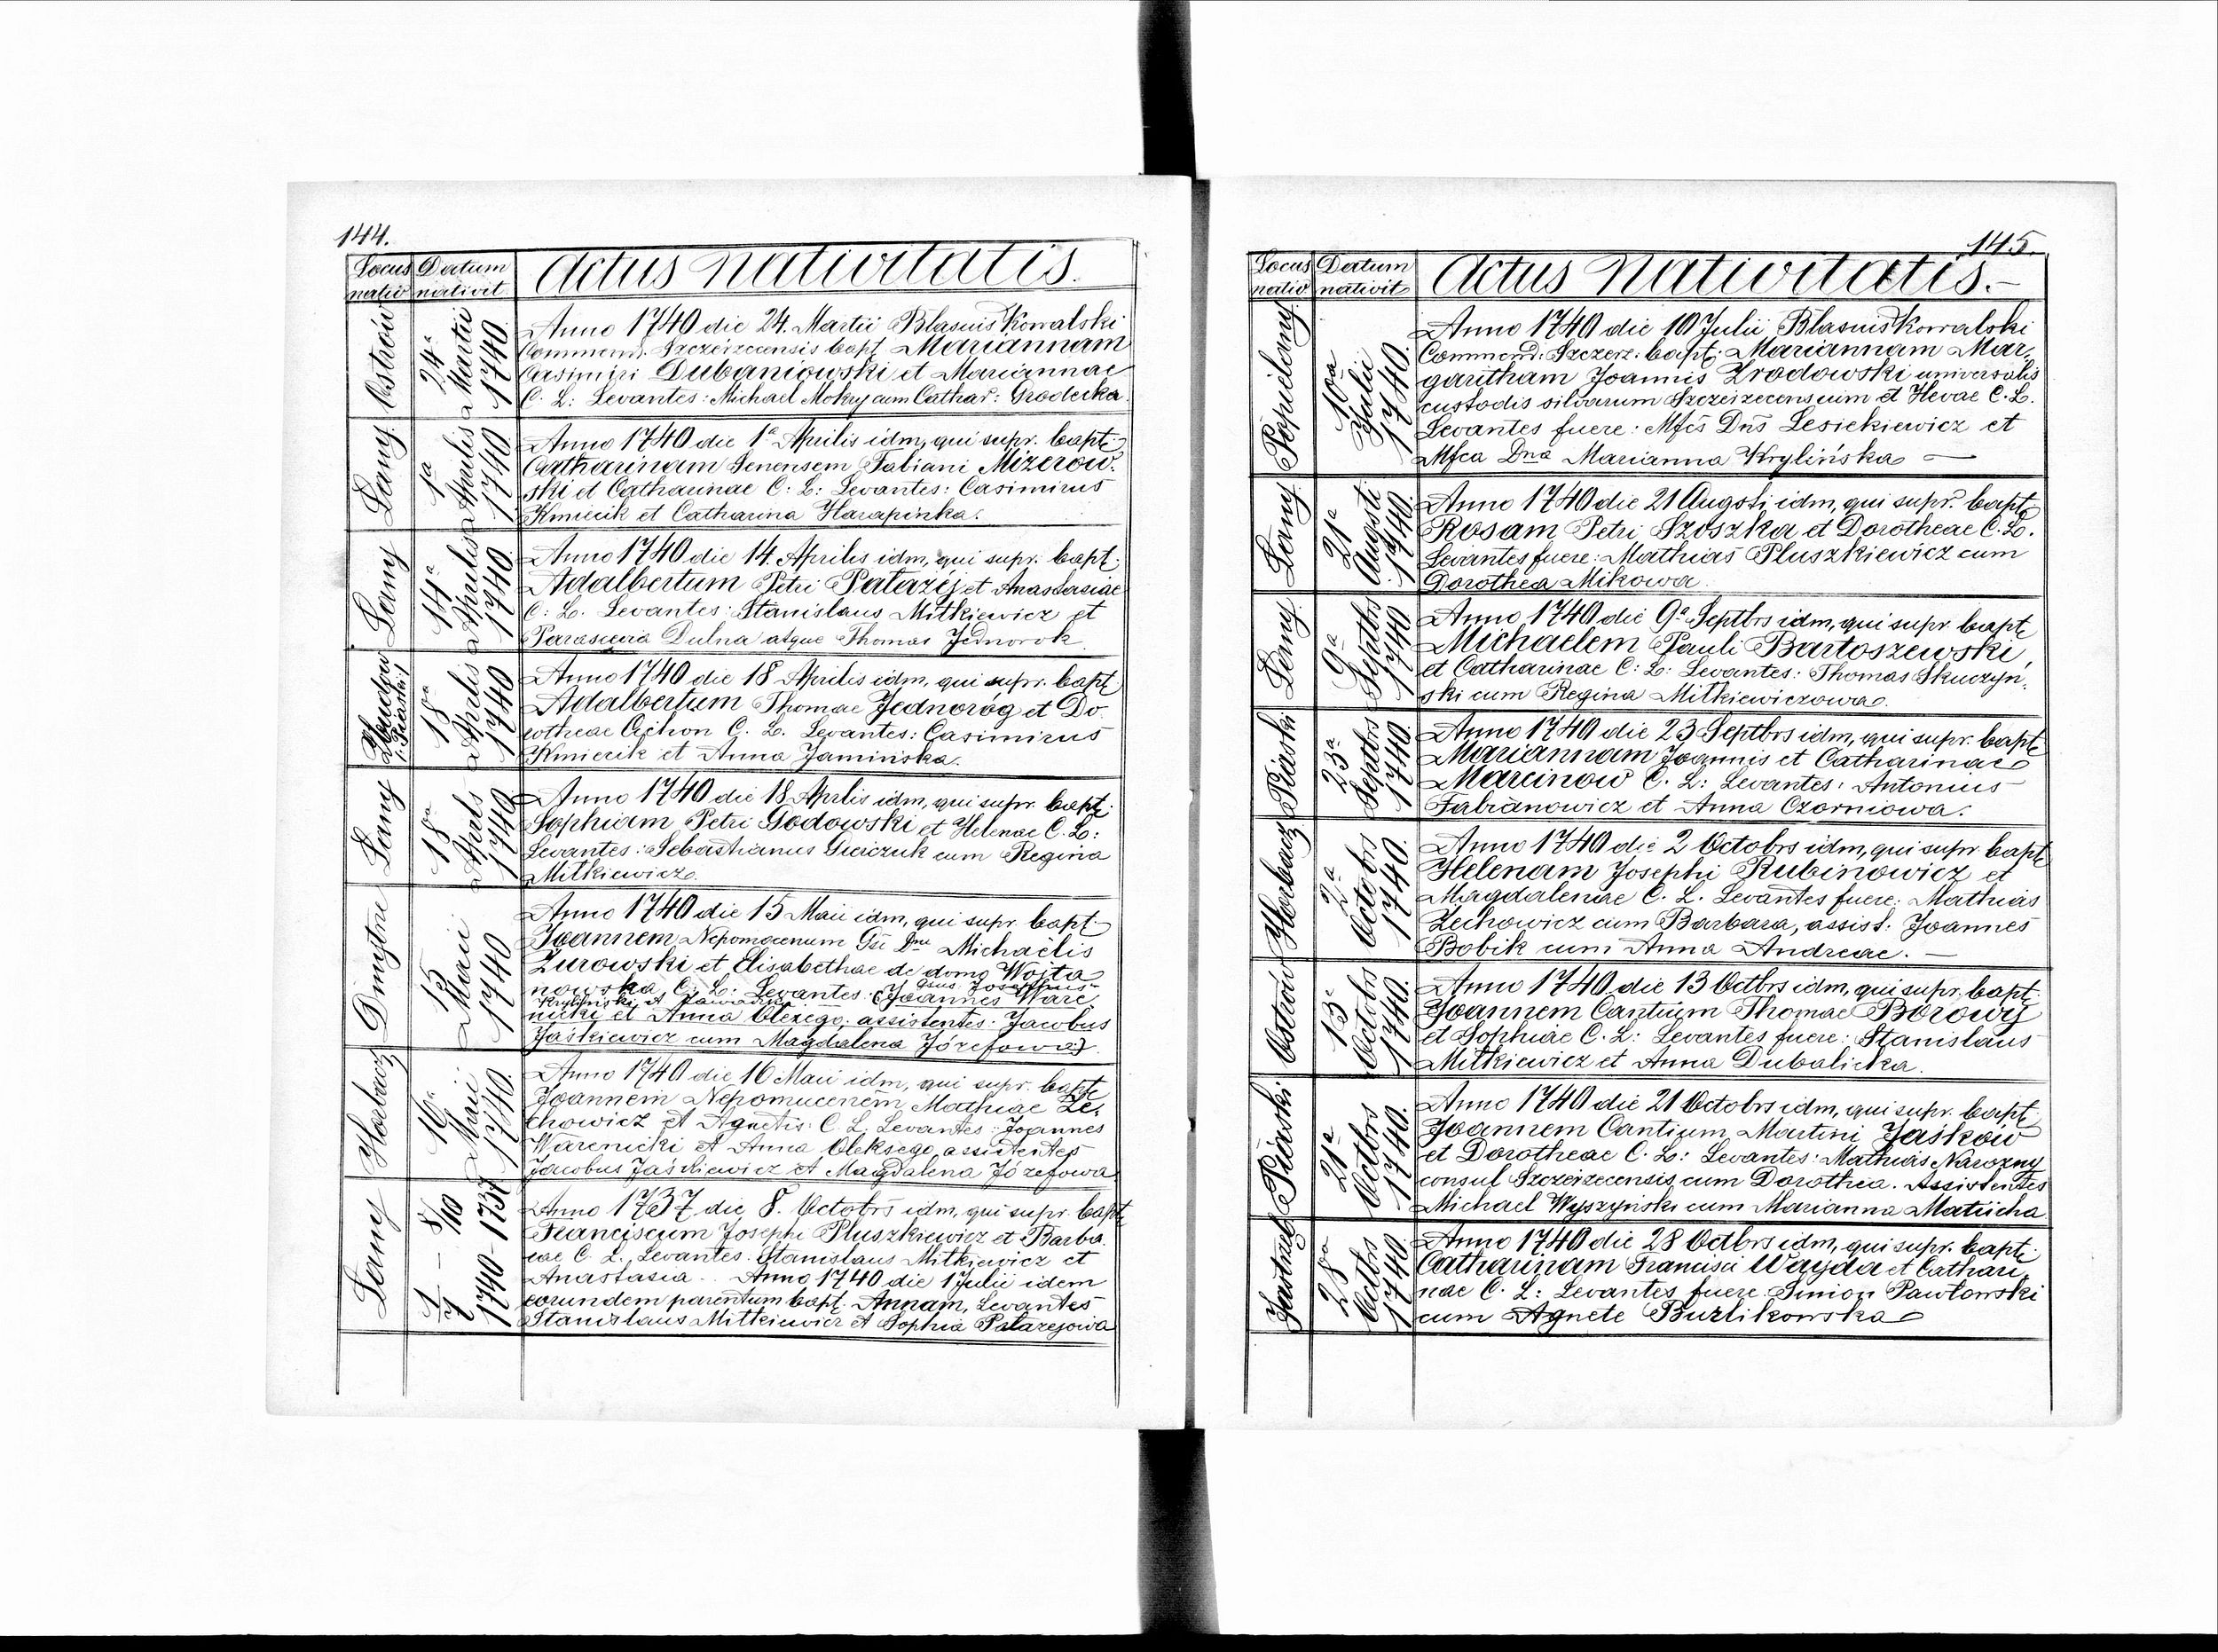 144.
Locus nativ
Datum nativit
Actus Nativitatis.
Ostrów
24a Martii 1740
Anno 1740 die 24. Martii Blasius Kowalski
Commend. Szczerzecensis bapt. Mariannam
Casimiri Dubaniowski et Mariannae
C. L: Levantes: Michael Mokry cum Cathar: Grodecka.
Lany
1a Aprilis 1740
Anno 1740 die 1a Aprilis idm, qui supr. bapt:
Catharinam Senensem Fabiani Mizerow.
ski et Catharinae C: L: Levantes: Casimirus
Kmiecik et Catharina Harapinka.
Lany
14a Aprilis 1740
Anno 1740 die 14. Aprilis idm, qui supr. bapt:
Adalbertum Petri Patazij et Anastasiae
C: L. Levantes: Stanislaus Mitkiewicz et
Parascevia Dulna atque Thomas Jednorok
18a Aprilis 1740
Anno 1740 die 18 Aprilis idm, qui supr. bapt:
Adalbertum Thomae Jednoróg et Do.
rotheae Cichon C. L. Levantes: Casimirus
Kmiecik et Anna Jaminska.
Lany
18a Aprls 1740
Anno 1740 die 18 Aprlis idm, qui supr. bapt:
Sophiam Petri Godowski et Helenae C. L:
Levantes: Sebastianus cum Regina
Mitkiewicz.
Dmytrie
15 Maii 1740
Anno 1740 die 15 Maii idm, qui supr. bapt
Joannem Nepomocenum Gsi Dni Michaëlis
Żurowski et Elisabethae de domo Wojta
nowska, C: L: Levantes: Gsus Josephus
Kryliński et
(Joannes Ware,
nicki et Anna Olexego, assistentes: Jacobus
Jaśkiewicz cum Magdalena Józefowa)
Horbacz
16a Maii 1740.
Anno 1740 die 16 Maii idm, qui supr. bapt:
Joannem Nepomucenem Mathiae Ze,
chowicz et Agnetis C. L. Levantes: Joannes
Warenicki et Anna Oleksego, assistentes
Jacobus Jaśkiewicz et Magdalena Józefowa
Lany
1/7 — 8/10 1740-1737
Anno 1737 die 8. Octobrs idm, qui supr. bapt:
Franciscum Josephi Pluszkiewicz et Barba.
rae C. L. Levantes. Stanislaus Mitkiewicz et
Anastasia.. Anno 1740 die 1 Julii idem
eorundem parentum bapt. Annam, Levantes
Stanislaus Mitkiewicz et Sophia Patarejowa
145.
Locus nativ
Datum nativit
Actus Nativitatis.-
Popielany
10a Julii 1740.
Anno 1740 die 10 Julii Blasius Kowalski
Commend: Szczerz: bapt: Mariannam Mar,
garitham Joannis Zrodowski universalis
custodis silvarum Szczerzecensium et Hevae C. L.
Levantes fuere: Mfcs Dns Lesiekiewicz et
Mfca Dna Marianna Krylińska —
Lany
21a Augsti 1740.
Anno 1740 die 21 Augsti idm, qui supr. bapt:
Rosam Petri Szoszka et Dorotheae C. L.
Levantes fuere: Mathias Pluszkiewicz cum
Dorothea Mikowa.
Lany
9a Septbrs 1740
Anno 1740 die 9a Septbrs idm, qui supr bapt:
Michaelem Pauli Bartoszewski,
et Catharinae C: L: Levantes: Thomas Skuczyn,
ski cum Regina Mitkiewiczowa.
Piaski
23a Septbrs 1740.
Anno 1740 die 23 Septbrs idm, qui supr. bapt:
Mariannam Joannis et Catharinae
Marcinow C. L: Levantes: Antonius
Fabianowicz et Anna Czorniowa.
Horbacz
2a Octobrs 1740.
Anno 1740 die 2 Octobrs idm, qui supr bapt:
Helenam Josephi Rubinowicz et
Magdalenae C. L. Levantes fuere: Mathias
Zechowicz cum Barbara, assist: Joannes
Bobik cum Anna Andreae. —
Ostrów
13a Octobrs 1740.
Anno 1740 die 13 Octbrs idm, qui supr. bapt:
Joannem Cantium Thomae Borowy
et Sophiae C. L: Levantes fuere: Stanislaus
Mitkiewicz et Anna Dubalicka.
Piaski
21a Octbrs 1740.
Anno 1740 die 21 Octobrs idm, qui supr. bapt:
Joannem Cantium Martini Jaśków
et Dorotheae C. L: Levantes: Mathias Narozny
consul Szczerzecensis, cum Dorothea. Assistentes
Michael Wyszyński cum Marianna Matiicha
28a Octbrs 1740
Anno 1740 die 28 Octbrs idm, qui supr. bapt:
Catharinam Francisci Wayda et Cathari,
nae C. L: Levantes fuere Simion Pawłowski
cum Agnete Burlikowska